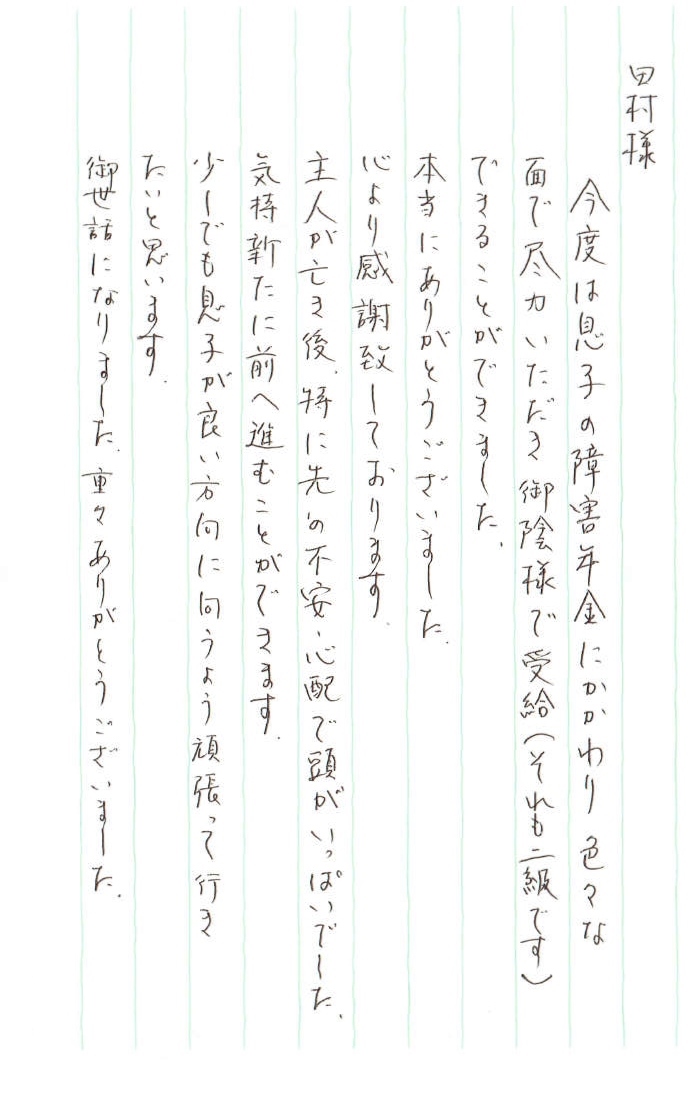 田村様
今度は息子の障害年金にかかわり色々な
面で尽力いただき御陰様で受給(それも二級です)
できることができました.
本当にありがとうございました.
心より感謝致しております.
主人が亡き後、特に先の不安・心配で頭がいっぱいでした.
気持新たに前へ進むことができます.
少しでも息子が良い方向に向うよう頑張って行き
たいと思います.
御世話になりました.重々ありがとうございました.